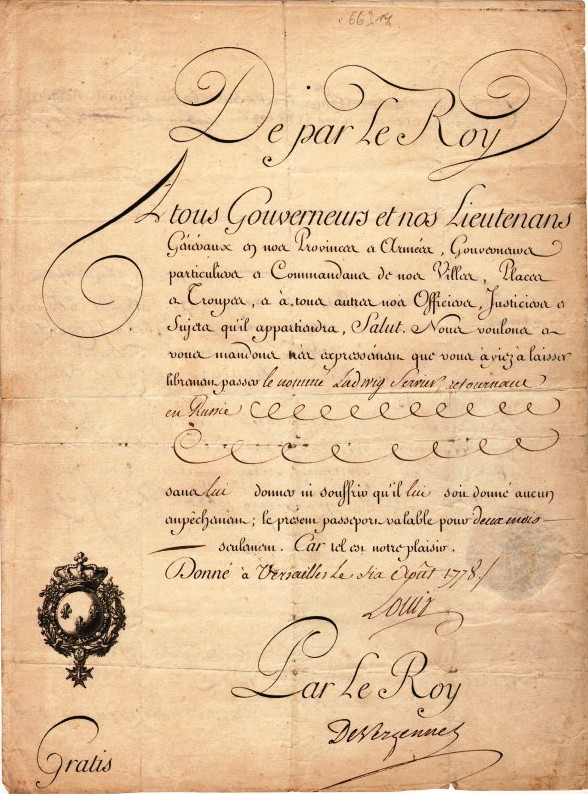 66314
De par Le Roy
A tous Gouverneurs et nos Lieutenans
Généraux en nos Provinces et Armées, Gouverneurs
particuliers et Commandans de nos Villes, Places
et Troupes, et à tous autres nos Officiers, Justiciers et
Sujets qu'il appartiendra, Salut. Nous voulons et
vous mandons très expressément que vous ayiez à laisser
librement passer le nommé Ludwig retournant
en Russie
sans lui donner ni souffrir qu'il lui soit donné aucun
empêchement; le présent passeport valable pour deux mois
seulement. Car tel est notre plaisir.
Donné à Versailles Le six Août 1778.
Louis
Par Le Roy
De Vergennes
Gratis